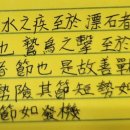 水之疾至於漂石者
也鷙鳥之擊至於
者節也是故善戰
勢險其節短勢如
節如發機